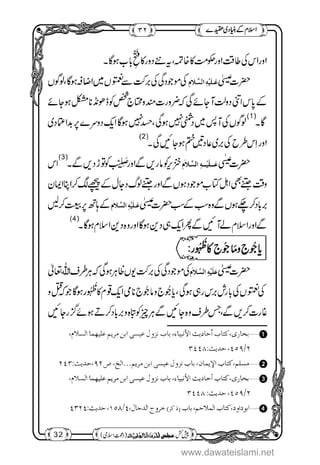 اسلام کے بنیادی عقیدے
۳۲
اور اس کی طاقت اور حکومت کا خاتمہ ہے، یہ نئے دور کا فتحِ باب ہوگا۔
حضرت عیسیٰ عَلَیْہِ السَّلَام کی موجودگی کی برکت سے نعمتوں میں اضافہ ہوگا، لوگوں
کے پاس اتنی دولت آجائے گی کہ ضرورت مند و محتاج شخص کو ڈھونڈنا مشکل ہوجائے
گا۔(1) لوگوں کی آپس میں دشمنی نہیں ہوگی، حسد نہیں ہوگا ایک دوسرے پر بد اعتمادی
اور اس طرح کی بری عادتیں ختم ہو جائیں گی۔(2)
حضرت عیسیٰ عَلَیْہِ السَّلَام خنزیر کو ماریں گے اور صلیب کو توڑ دیں گے۔(3) اس
وقت جتنے بھی اہلِ کتاب موجود ہوں گے اور جتنے لوگ دجال کے پیچھے لگ کر اپنا ایمان
برباد کرچکے ہوں گے وہ سب کے سب حضرت عیسیٰ عَلَیْہِ السَّلَام کے ہاتھ پر بیعت کرلیں
گے اور اسلام لے آئیں گے پھر ایک ہی دین ہوگا اور وہ دین اسلام ہوگا۔(4)
یاجوج وماجوج کا ظہور:
حضرت عیسیٰ عَلَیْہِ السَّلَام کی موجودگی کی برکتیں یوں ہی ظاہر ہوں گی کہ ہر طرف اللہ تعالیٰ
کی نعمتوں کی بارش برس رہی ہوگی، یاجوج وماجوج نامی ایک قوم کا ظہور ہوگا جو قتل و
غارت کریں گے، جس طرف جائیں گے وہاں ہر چیز کو تباہ و برباد کرتے ہوئے گزر جائیں گے
1 ......بخاری، کتاب أحادیث الأنبیاء، باب نزول عیسی ابن مریم علیھما السلام،
۲/۴۵۹، حدیث:۳۴۴۸
2 ......مسلم، کتاب الإیمان، باب نزول عیسی ابن مریم...الخ، ص۹۲، حدیث:۲۴۳
3 ......بخاری، کتاب أحادیث الأنبیاء، باب نزول عیسی ابن مریم علیھما السلام،
۲/۴۵۹، حدیث:۳۴۴۸
4 ......ابوداود، کتاب الملاحم، باب (ذکر) خروج الدجال، ۴/۱۵۸، حدیث:۴۳۲۴
32
www.dawateislami.net